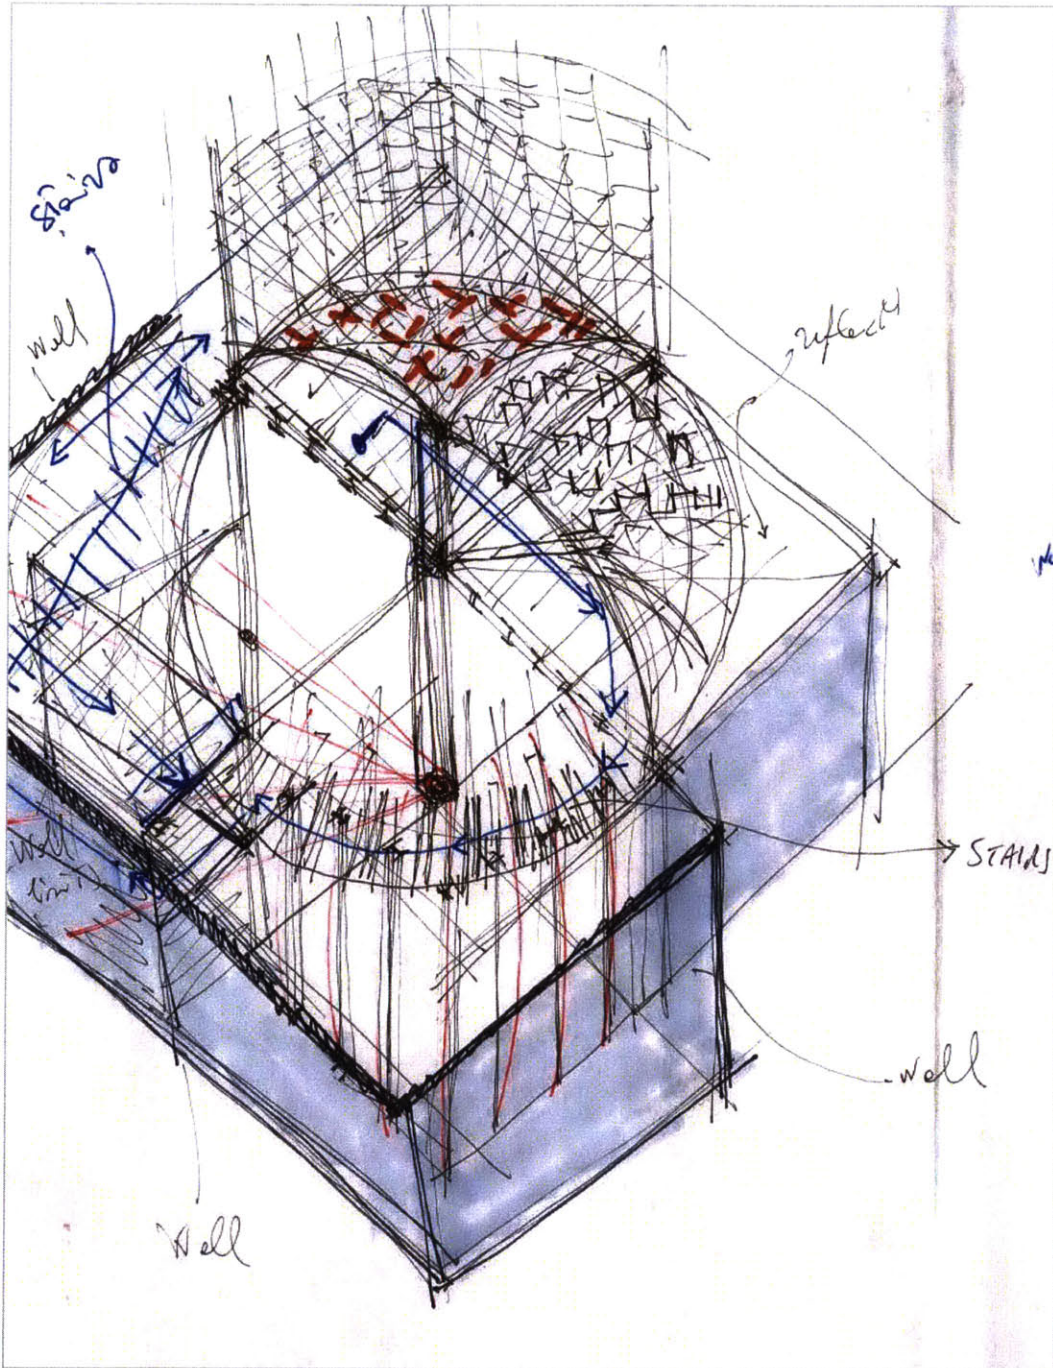 stairs
Wall
reflect
STAIRS
Wall
Wall
Wall